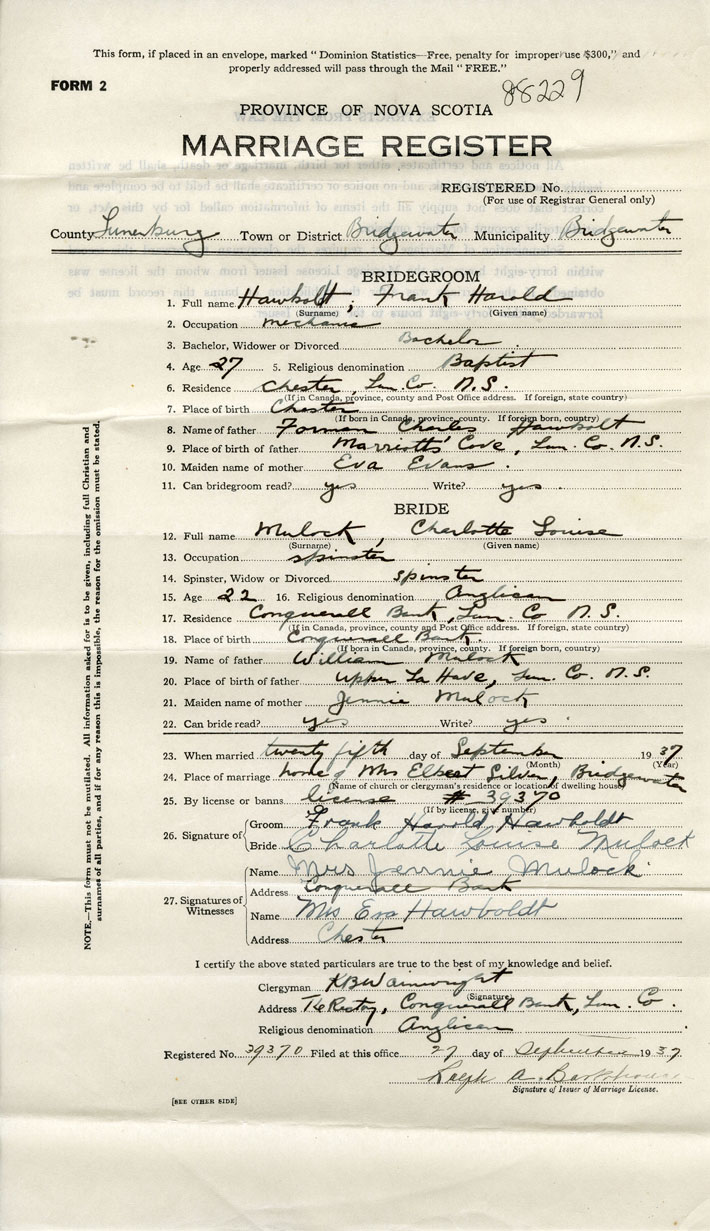 This form, if placed in an envelope, marked "Dominion Statistics—Free, penalty for improper use $300," and
properly addressed will pass through the Mail "FREE."
FORM 2
88229
PROVINCE OF NOVA SCOTIA
MARRIAGE REGISTER
REGISTERED No.
(For use of Registrar General only)
County Lunenburg Town or District Bridgewater Municipality Bridgewater
BRIDEGROOM
1. Full name Hawboldt, Frank Harold
(Surname) (Given name)
2. Occupation mechanic
3. Bachelor, Widower or Divorced Bachelor
4. Age 27 5. Religious denomination Baptist
6. Residence Chester, Lun. Co. N.S.
(If in Canada, province, county and Post Office address. If foreign, state country)
7. Place of birth Chester
(If born in Canada, province, county. If foreign born, country)
8. Name of father Forman Charles Hawboldt
9. Place of birth of father Marriotts' Cove, Lun. Co. N.S.
10. Maiden name of mother Eva Evans.
11. Can bridegroom read? yes Write? yes.
BRIDE
12. Full name Mulock, Charlotte Louise
(Surname) (Given name)
13. Occupation spinster
14. Spinster, Widow or Divorced spinster
15. Age 22 16. Religious denomination Anglican
17. Residence Conquerall Bank, Lun. Co N.S.
(If in Canada, province, county and Post Office address. If foreign, state country)
18. Place of birth Conquerall Bank.
(If born in Canada, province, county. If foreign born, country)
19. Name of father William Mulock
20. Place of birth of father Upper La Have, Lun. Co. N.S.
21. Maiden name of mother Jennie Mulock
22. Can bride read? yes Write? yes
23. When married twenty fifth day of September 1937
(Month) (Year)
24. Place of marriage home of Mrs Elbert Silver, Bridgewater
(Name of church or clergyman's residence or location of dwelling house)
25. By license or banns license # 39370
(If by license, give number)
26. Signature of
Groom Frank Harold Hawboldt
Bride Charlotte Louise Mulock
27. Signatures of Witnesses
Name Mrs Jennie Mulock
Address Conquerall Bank
Name Mrs Eva Hawboldt
Address Chester
I certify the above stated particulars are true to the best of my knowledge and belief.
Clergyman KB Wainwright
(Signature)
Address The Rectory, Conquerall Bank, Lun. Co.
Religious denomination Anglican
Registered No. 39370 Filed at this office 27 day of September 1937
Ralph A. Barkhouse
Signature of Issuer of Marriage License.
[SEE OTHER SIDE]
NOTE.—This form must not be mutilated. All information asked for is to be given, including full Christian and
surnames of all parties, and if for any reason this is impossible, the reason for the omission must be stated.